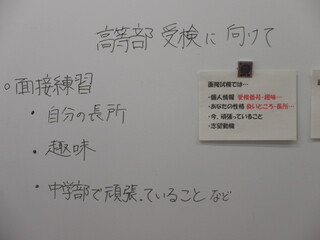 高等部 受検に 向けて
○面接練習
・自分の長所
・趣味
・中学部で頑張っていること など
面接試験では…
・個人情報 受検番号・趣味…
・あなたの性格 良いところ・長所…
・今、頑張っていること
・志望動機